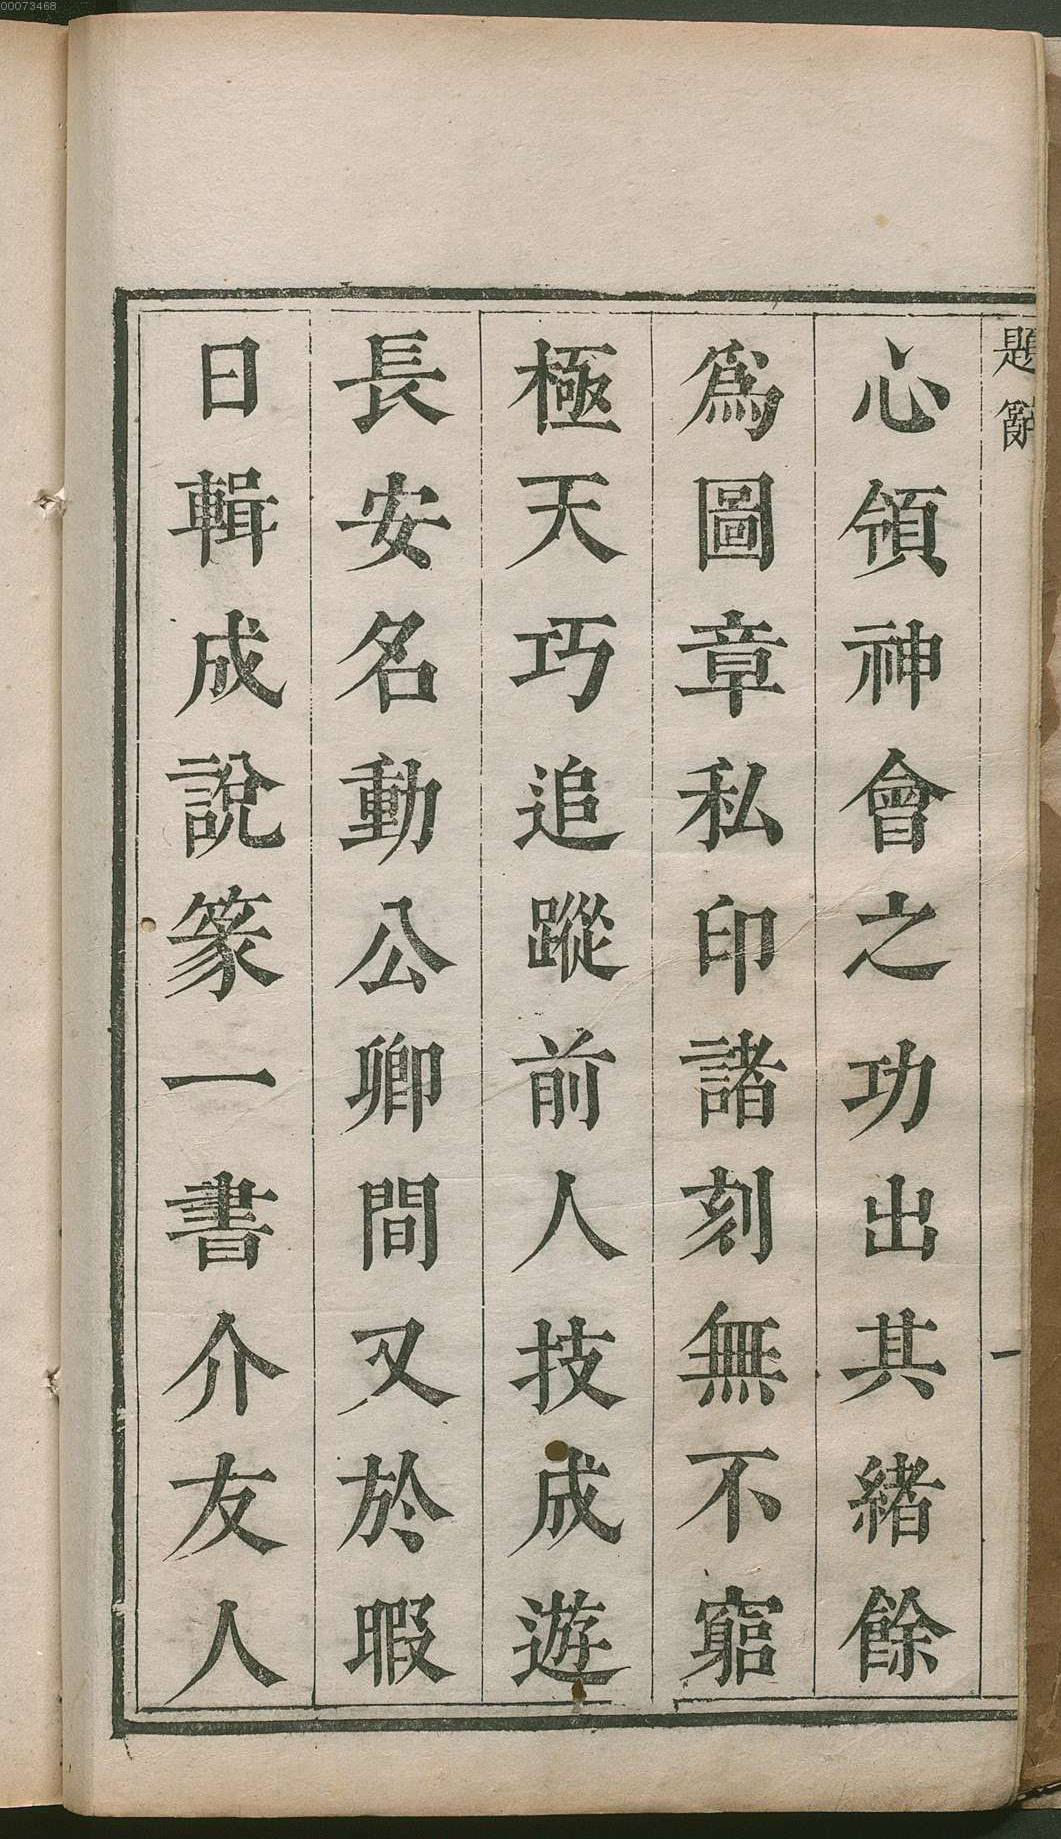 00073468
題辭
一
心領神會之功出其緒餘
爲圖章私印諸刻無不窮
極天巧追蹤前人技成遊
長安名動公卿間又於暇
日輯成說篆一書介友人